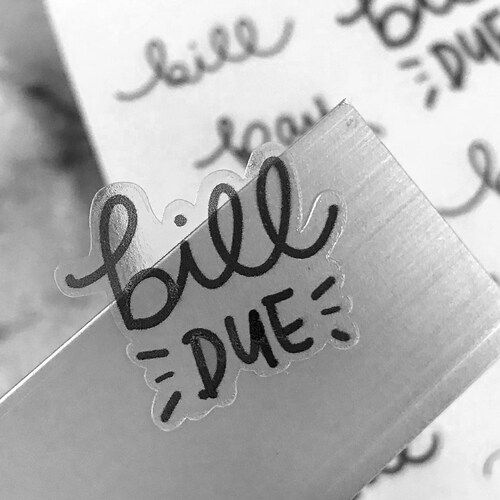 bill
bill
DUE
pay
bill
DUE